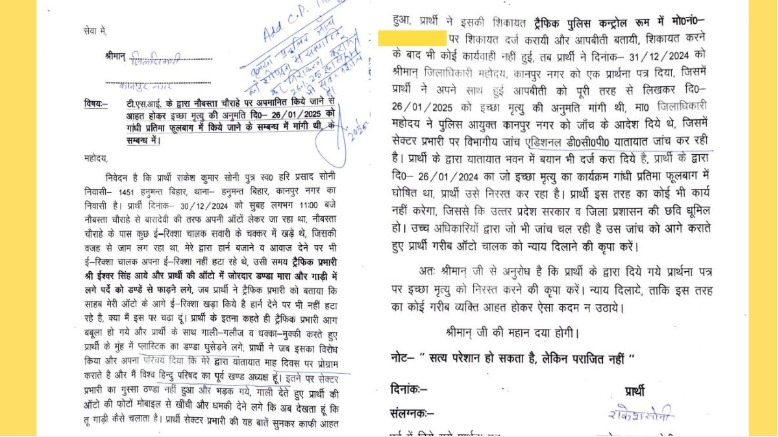 सेवा में,
श्रीमान् जिलाधिकारी
कानपुर नगर
विषयः– टी.एस.आई. के द्वारा नौबस्ता चौराहे पर अपमानित किये जाने से
आहत होकर इच्छा मृत्यु की अनुमति दि0– 26/01/2025 को
गांधी प्रतिमा फूलबाग में किये जाने के सम्बन्ध में मांगी थी, के
सम्बन्ध में।
महोदय,
निवेदन है कि प्रार्थी राकेश कुमार सोनी पुत्र स्व0 हरि प्रसाद सोनी
निवासी– 1451 हनुमन्त बिहार, थाना– हनुमन्त बिहार, कानपुर नगर का
निवासी है। प्रार्थी दिनांक– 30/12/2024 को सुबह लगभग 11:00 बजे
नौबस्ता चौराहे से बारादेवी की तरफ अपनी ऑटों लेकर जा रहा था, नौबस्ता
चौराहे के पास कुछ ई–रिक्शा चालक सवारी के चक्कर में खड़े थे, जिसकी
वजह से जाम लग रहा था, मेरे द्वारा हार्न बजाने व आवाज देने पर भी
ई–रिक्शा चालक अपना ई–रिक्शा नहीं हटा रहे थे, उसी समय ट्रैफिक प्रभारी
श्री ईश्वर सिंह आये और प्रार्थी की ऑटो में जोरदार डण्डा मारा और गाड़ी में
लगे पर्दे को डण्डे से फाड़ने लगे, जब प्रार्थी ने ट्रैफिक प्रभारी को बताया कि
साहब मेरी ऑटो के आगे ई–रिक्शा खड़ा किये है हार्न देने पर भी नहीं हटा
रहे है, क्या मैं इस पर चढ़ा दूं। प्रार्थी के इतना कहते ही ट्रैफिक प्रभारी आग
बबूला हो गये और प्रार्थी के साथ गाली–गलौज व धक्का–मुक्की करते हुए
प्रार्थी के मुंह में प्लास्टिक का डण्डा घुसेड़ने लगे, प्रार्थी ने जब इसका विरोध
किया और अपना परिचय दिया कि मेरे द्वारा यातायात माह दिवस पर प्रोग्राम
कराते है और मैं विश्व हिन्दु परिषद का पूर्व खण्ड अध्यक्ष हूं। इतने पर सेक्टर
प्रभारी का गुस्सा ठण्डा नहीं हुआ और भड़क गये, गाली देते हुए प्रार्थी की
ऑटो की फोटों मोबाइल से खींची और धमकी देने लगे कि अब देखता हूं कि
तू गाड़ी कैसे चलाता है। प्रार्थी सेक्टर प्रभारी की यह बातें सुनकर काफी आहत
हुआ, प्रार्थी ने इसकी शिकायत ट्रैफिक पुलिस कन्ट्रोल रूम में मो0नं0–
पर शिकायत दर्ज करायी और आपबीती बतायी, शिकायत करने
के बाद भी कोई कार्यवाही नही हुई, तब प्रार्थी ने दिनांक– 31/12/2024 को
श्रीमान् जिलाधिकारी महोदय, कानपुर नगर को एक प्रार्थना पत्र दिया, जिसमें
प्रार्थी ने अपने साथ हुई आपबीती को पूरी तरह से लिखकर दि0–
26/01/2025 को इच्छा मृत्यु की अनुमति मांगी थी, मा0 जिलाधिकारी
महोदय ने पुलिस आयुक्त कानपुर नगर को जाँच के आदेश दिये थे, जिसमें
सेक्टर प्रभारी पर विभागीय जांच एडिशनल डी0सी0पी0 यातायात जांच कर रही
है। प्रार्थी के द्वारा यातायात भवन में बयान भी दर्ज करा दिये है, प्रार्थी के द्वारा
दि0– 26/01/2024 का जो इच्छा मृत्यु का कार्यक्रम गांधी प्रतिमा फूलबाग में
घोषित था, प्रार्थी उसे निरस्त कर रहा है। प्रार्थी इस तरह का कोई भी कार्य
नहीं करेगा, जिससे कि उत्तर प्रदेश सरकार व जिला प्रशासन की छवि धूमिल
हो। उच्च अधिकारियों द्वारा जो भी जांच चल रही है उस जांच को आगे कराते
हुए प्रार्थी गरीब ऑटो चालक को न्याय दिलाने की कृपा करें।
अतः श्रीमान् जी से अनुरोध है कि प्रार्थी के द्वारा दिये गये प्रार्थना पत्र
पर इच्छा मृत्यु को निरस्त करने की कृपा करें। न्याय दिलाये, ताकि इस तरह
का कोई गरीब व्यक्ति आहत होकर ऐसा कदम न उठाये।
श्रीमान् जी की महान दया होगी।
नोट– " सत्य परेशान हो सकता है, लेकिन पराजित नहीं "
दिनांकः–
प्रार्थी
संलग्नकः–
राकेश सोनी